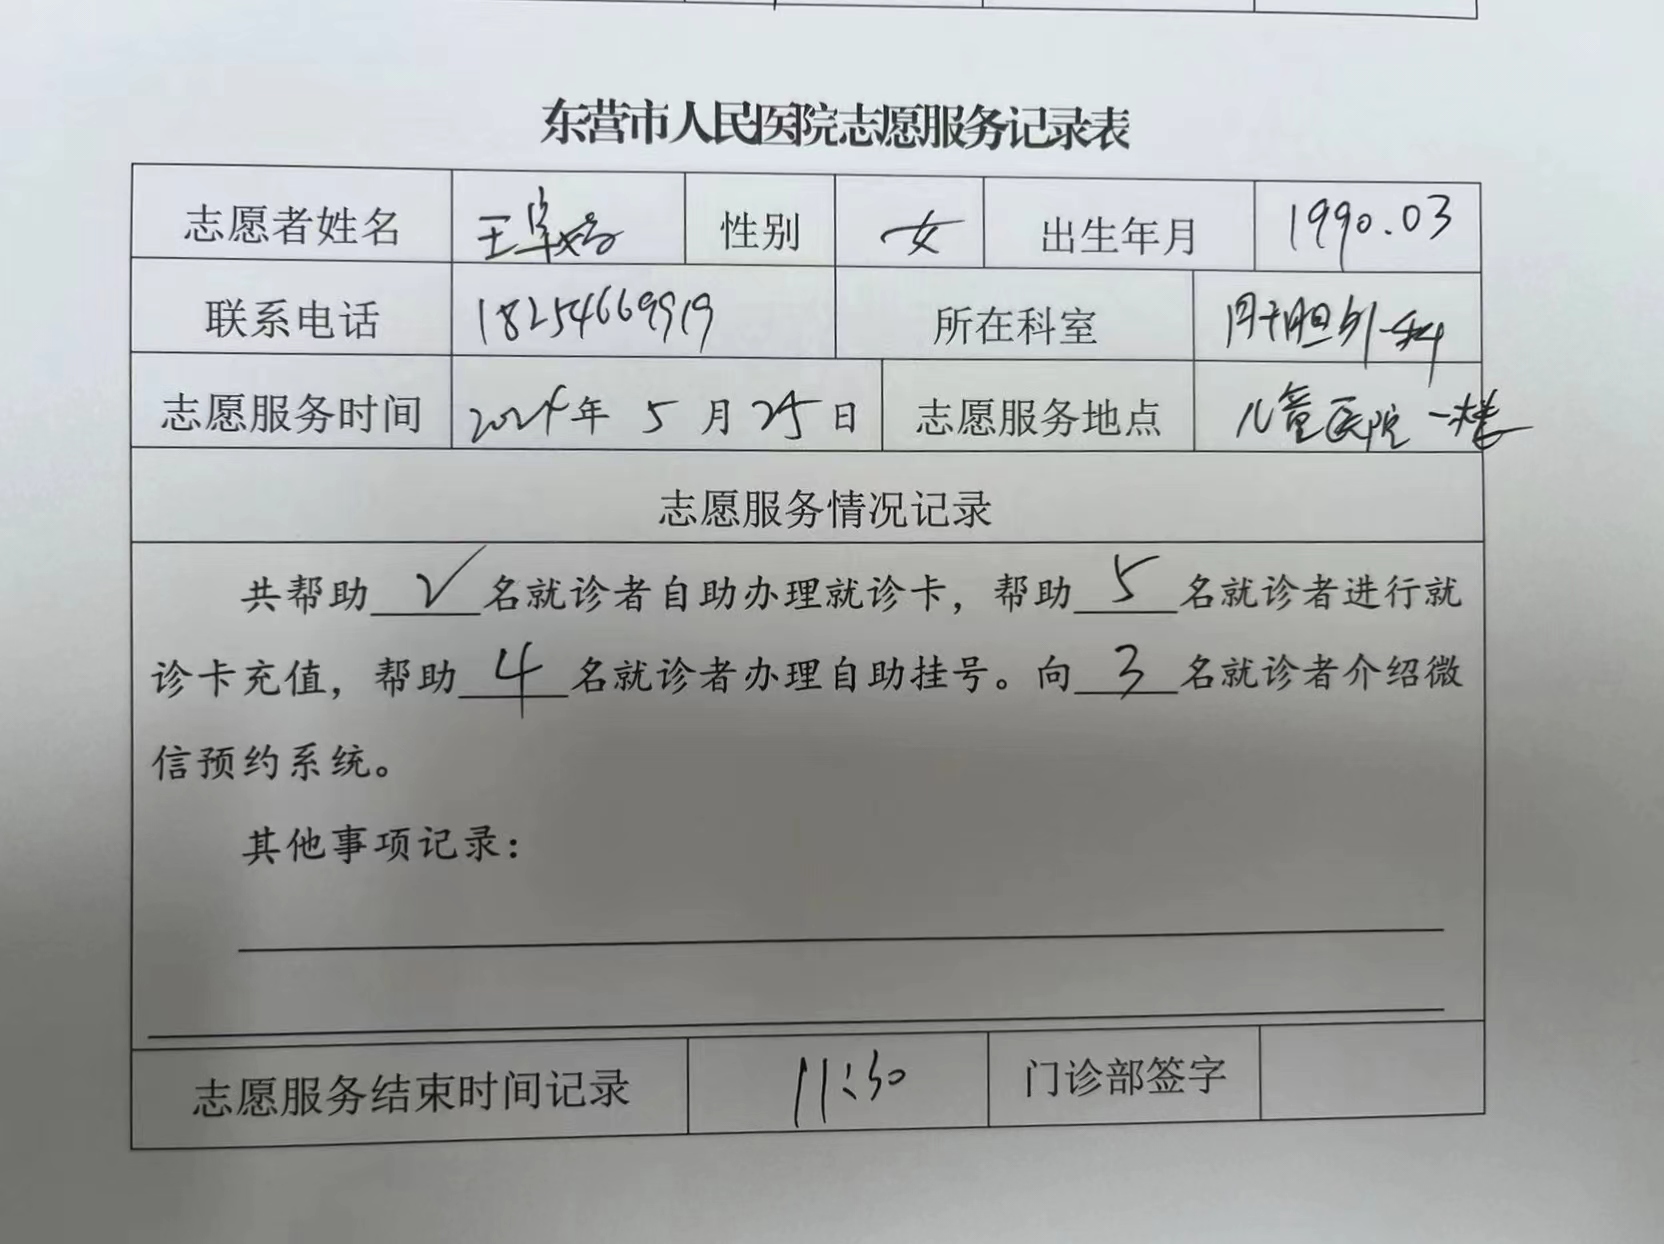 东营市人民医院志愿服务记录表
志愿者姓名 王 性别 女 出生年月 1990.03
联系电话 18254669919 所在科室 肝胆外科
志愿服务时间 2024年 5 月 25 日 志愿服务地点 儿童医院 一楼
志愿服务情况记录
共帮助 √ 名就诊者自助办理就诊卡，帮助 5 名就诊者进行就
诊卡充值，帮助 4 名就诊者办理自助挂号。向 3 名就诊者介绍微
信预约系统。
其他事项记录：
志愿服务结束时间记录 11:30 门诊部签字